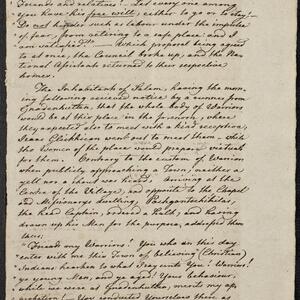 Friends and relatives! – Let every one among
You know this free will, either to go or to stay! –
Do not hinder such a labour under the impulse
of fear, from retiring to a safe place: and I
am relieved." – Which proposal being agreed
to at once, the Council broke up, and the Na-
tional Assistants returned to their respective
homes.
The Inhabitants of Salem, having the morn-
ing following received notice by a runner from
Gnadenhutten, that the whole body of Warriors
would be at this place in the forenoon, where
they expected also to meet with a kind reception,
Isaac Glickhican went out to meet them – while
the Women of the place would prepare victuals
for them. Contrary to the custom of Warriors
when publickly approaching a Town, neither a
yell nor a shout was heard. Arriving at the
Centre of the Village, and opposite to the Chapel
and Missionarys dwelling, Pachgantschihilas,
the head Captain, ordered a Halt, and having
drawn up his Men for the purpose, addressed them
thus:
"Friends my Warriors! You who on this day
enter with me this Town of believing (Christian)
Indians hearken to what I say unto You! Harken!
ye young Men, and ye aged! Your behaviour,
while we were at Gnadenhutten, merits my ap-
probation! You conducted Yourselves there as